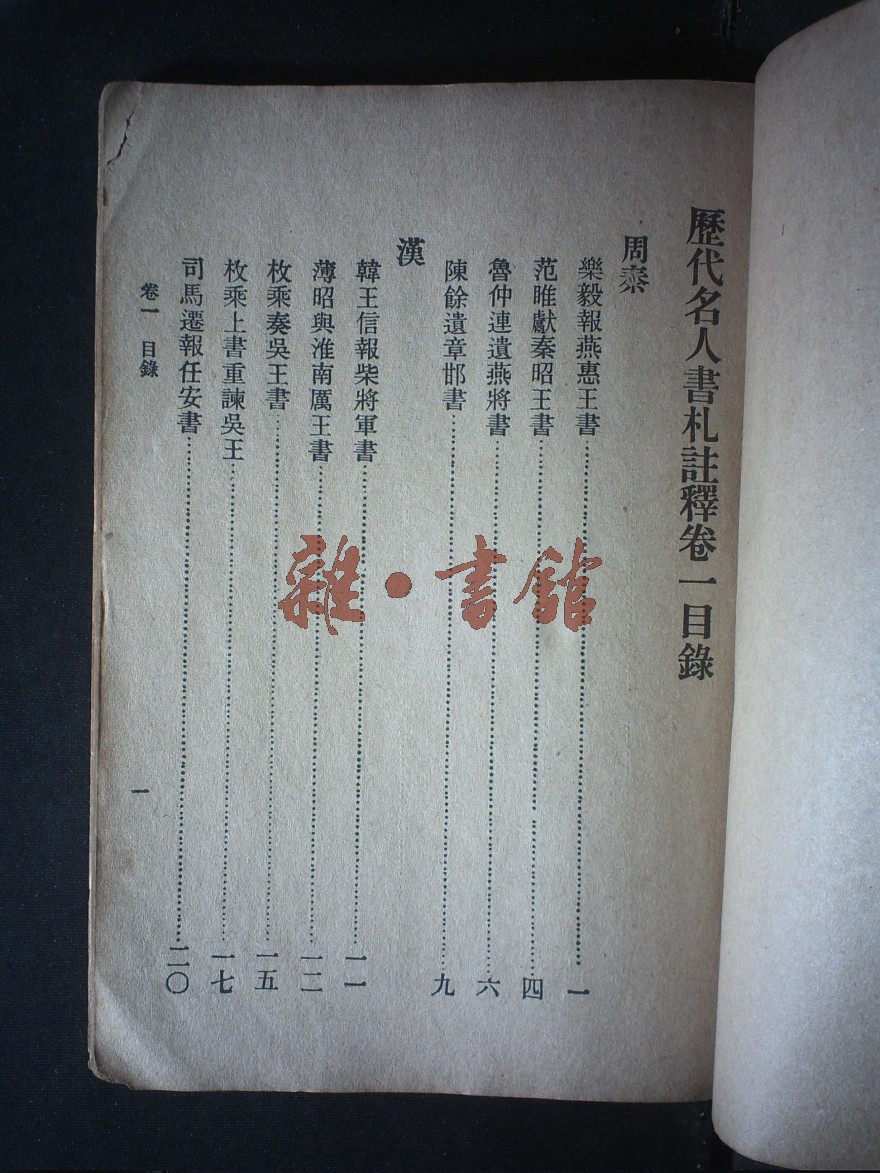 歷代名人書札註釋卷一目錄
周秦
樂毅報燕惠王書……一
范雎獻秦昭王書……四
魯仲連遺燕將書……六
陳餘遺章邯書……九
漢
韓王信報柴將軍書……一一
薄昭與淮南厲王書……一二
枚乘奏吳王書……一五
枚乘上書重諫吳王……一七
司馬遷報任安書……二〇
卷一 目錄
一
雜·書館